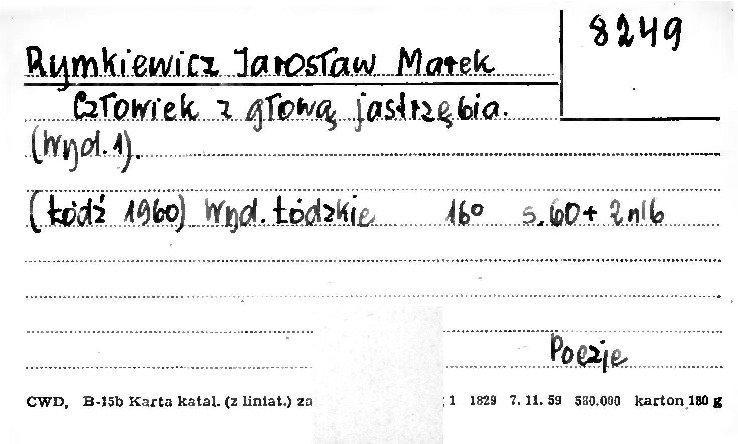 8249
Rymkiewicz Jarosław Marek
Człowiek z głową jastrzębia.
(Wyd. 1).
(Łódź 1960) Wyd. Łódzkie 16° s. 60 + 2 nlb
Poezje
CWD, B-15b Karta katal. (z liniat.) za 1 1829 7. 11. 59 580.000 karton 180 g